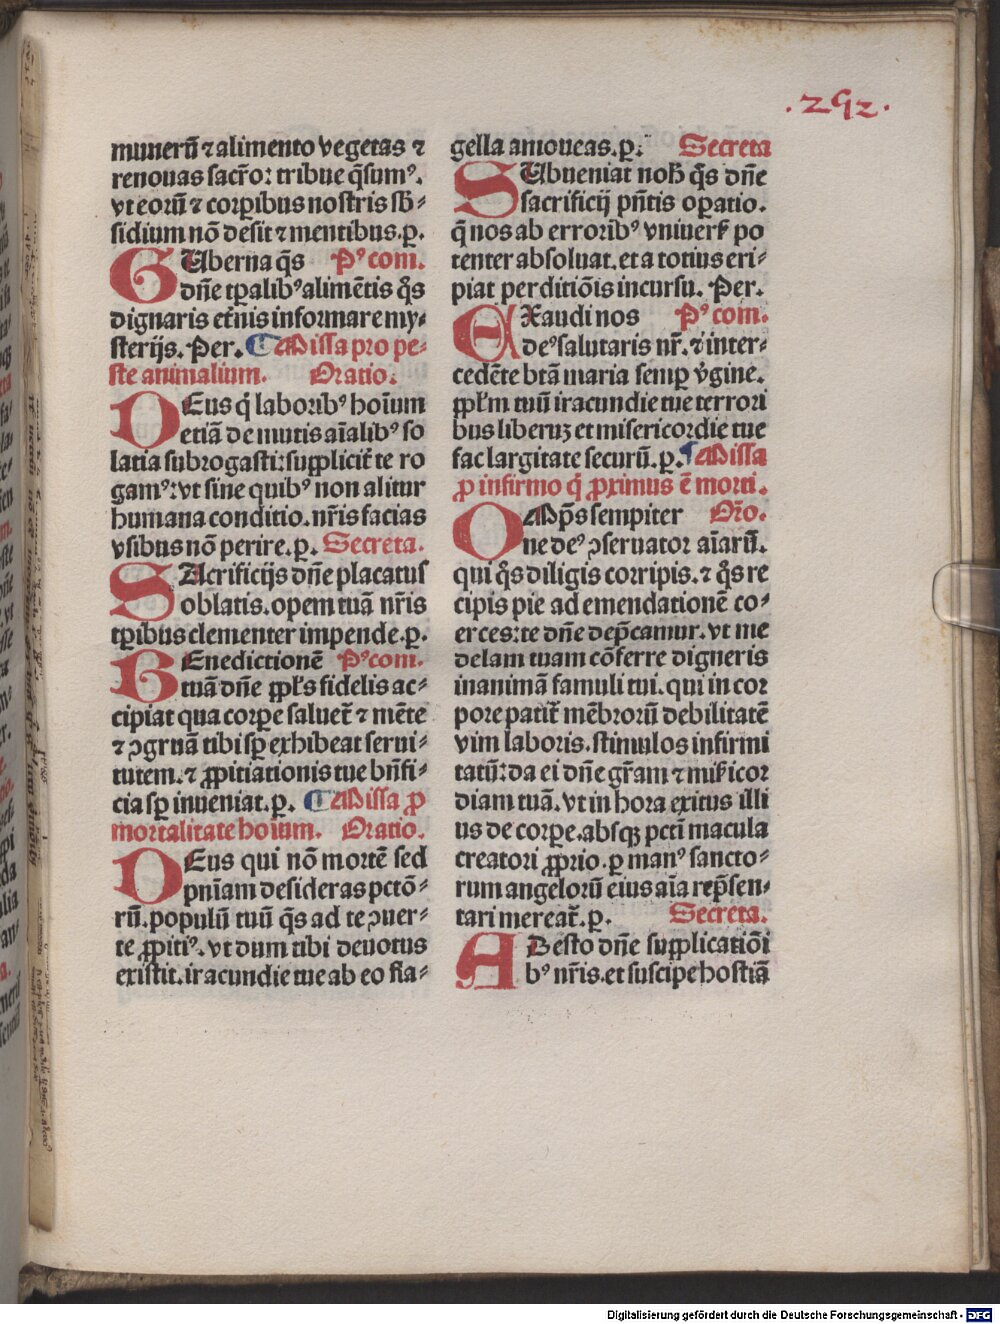 .292.
munerū ⁊ alimento vegetas ⁊
renouas sacr̄oꝝ tribue q̄sumꝰ.
vt eorū ⁊ corꝑibus nostris sb̄-
sidium nō desit ⁊ mentibus.ꝑ.
GUberna q̄s Pꝰcom.
dn̄e tꝑalibꝰ alimētis q̄s
dignaris et̄nis informare my-
sterijs. Per. ¶ Missa pro pe-
ste animalium. Oratio.
DEus q̄ laboribꝰ hoīum
etiā de mutis aīalibꝰ so
latia subrogasti: supplicit̄ te ro
gamꝰ: vt sine quibꝰ non alitur
humana conditio. nr̄is facias
vsibus nō perire.ꝑ. Secreta.
SAcrificijs dn̄e placatus
oblatis. opem tuā nr̄is
tꝑibus clementer impende.ꝑ.
BEnedictionē Pꝰcom.
tuā dn̄e ꝓpl̄s fidelis ac-
cipiat qua corꝑe saluet̄ ⁊ mēte
⁊ ꝯgruā tibi sꝑ exhibeat serui-
tutem. ⁊ ꝓpitiationis tue bn̄fi-
cia sꝑ inueniat.ꝑ. ¶ Missa ꝓ
mortalitate hoīum. Oratio.
DEus qui nō mortē sed
pn̄iam desideras pctō-
rū. populū tuū q̄s ad te ꝯuer-
te ꝓpitiꝰ. vt dum tibi deuotus
existit. iracundie tue ab eo fla-
gella amoueas.ꝑ. Secreta
SUbueniat nob̄ q̄s dn̄e
sacrificij pn̄tis oꝑatio.
q̄ nos ab erroribꝰ vniuers̄ po
tenter absoluat. et a totius eri-
piat perditiōis incursu. Per.
EXaudi nos Pꝰcom.
deꝰ salutaris nr̄. ⁊ inter-
cedēte btā maria semꝑ v̄gine.
ꝓpl̄m tuū iracundie tue terrori
bus liberuꝫ et misericordie tue
fac largitate securū.ꝑ. ¶ Missa
ꝓ infirmo q̄ ꝓximus ē morti.
OMp̄s sempiter Or̄o.
ne deꝰ ꝯseruator aīarū.
qui q̄s diligis corripis. ⁊ q̄s re
cipis pie ad emendationē co-
erces: te dn̄e dep̄camur. vt me
delam tuam cōferre digneris
in animā famuli tui. qui in cor
pore patit̄ mēbrorū debilitatē
vim laboris. stimulos infirmi
tatū: da ei dn̄e gr̄am ⁊ mis̄icor
diam tuā. vt in hora exitus illi
us de corꝑe. absqꝫ pcti macula
creatori ꝓprio. ꝑ manꝰ sancto-
rum angelorū eius aīa rep̄sen-
tari mereat̄.ꝑ. Secreta.
ABesto dn̄e supplicatiōi
bꝰ nr̄is. et suscipe hostiā
Digitalisierung gefördert durch die Deutsche Forschungsgemeinschaft - DFG